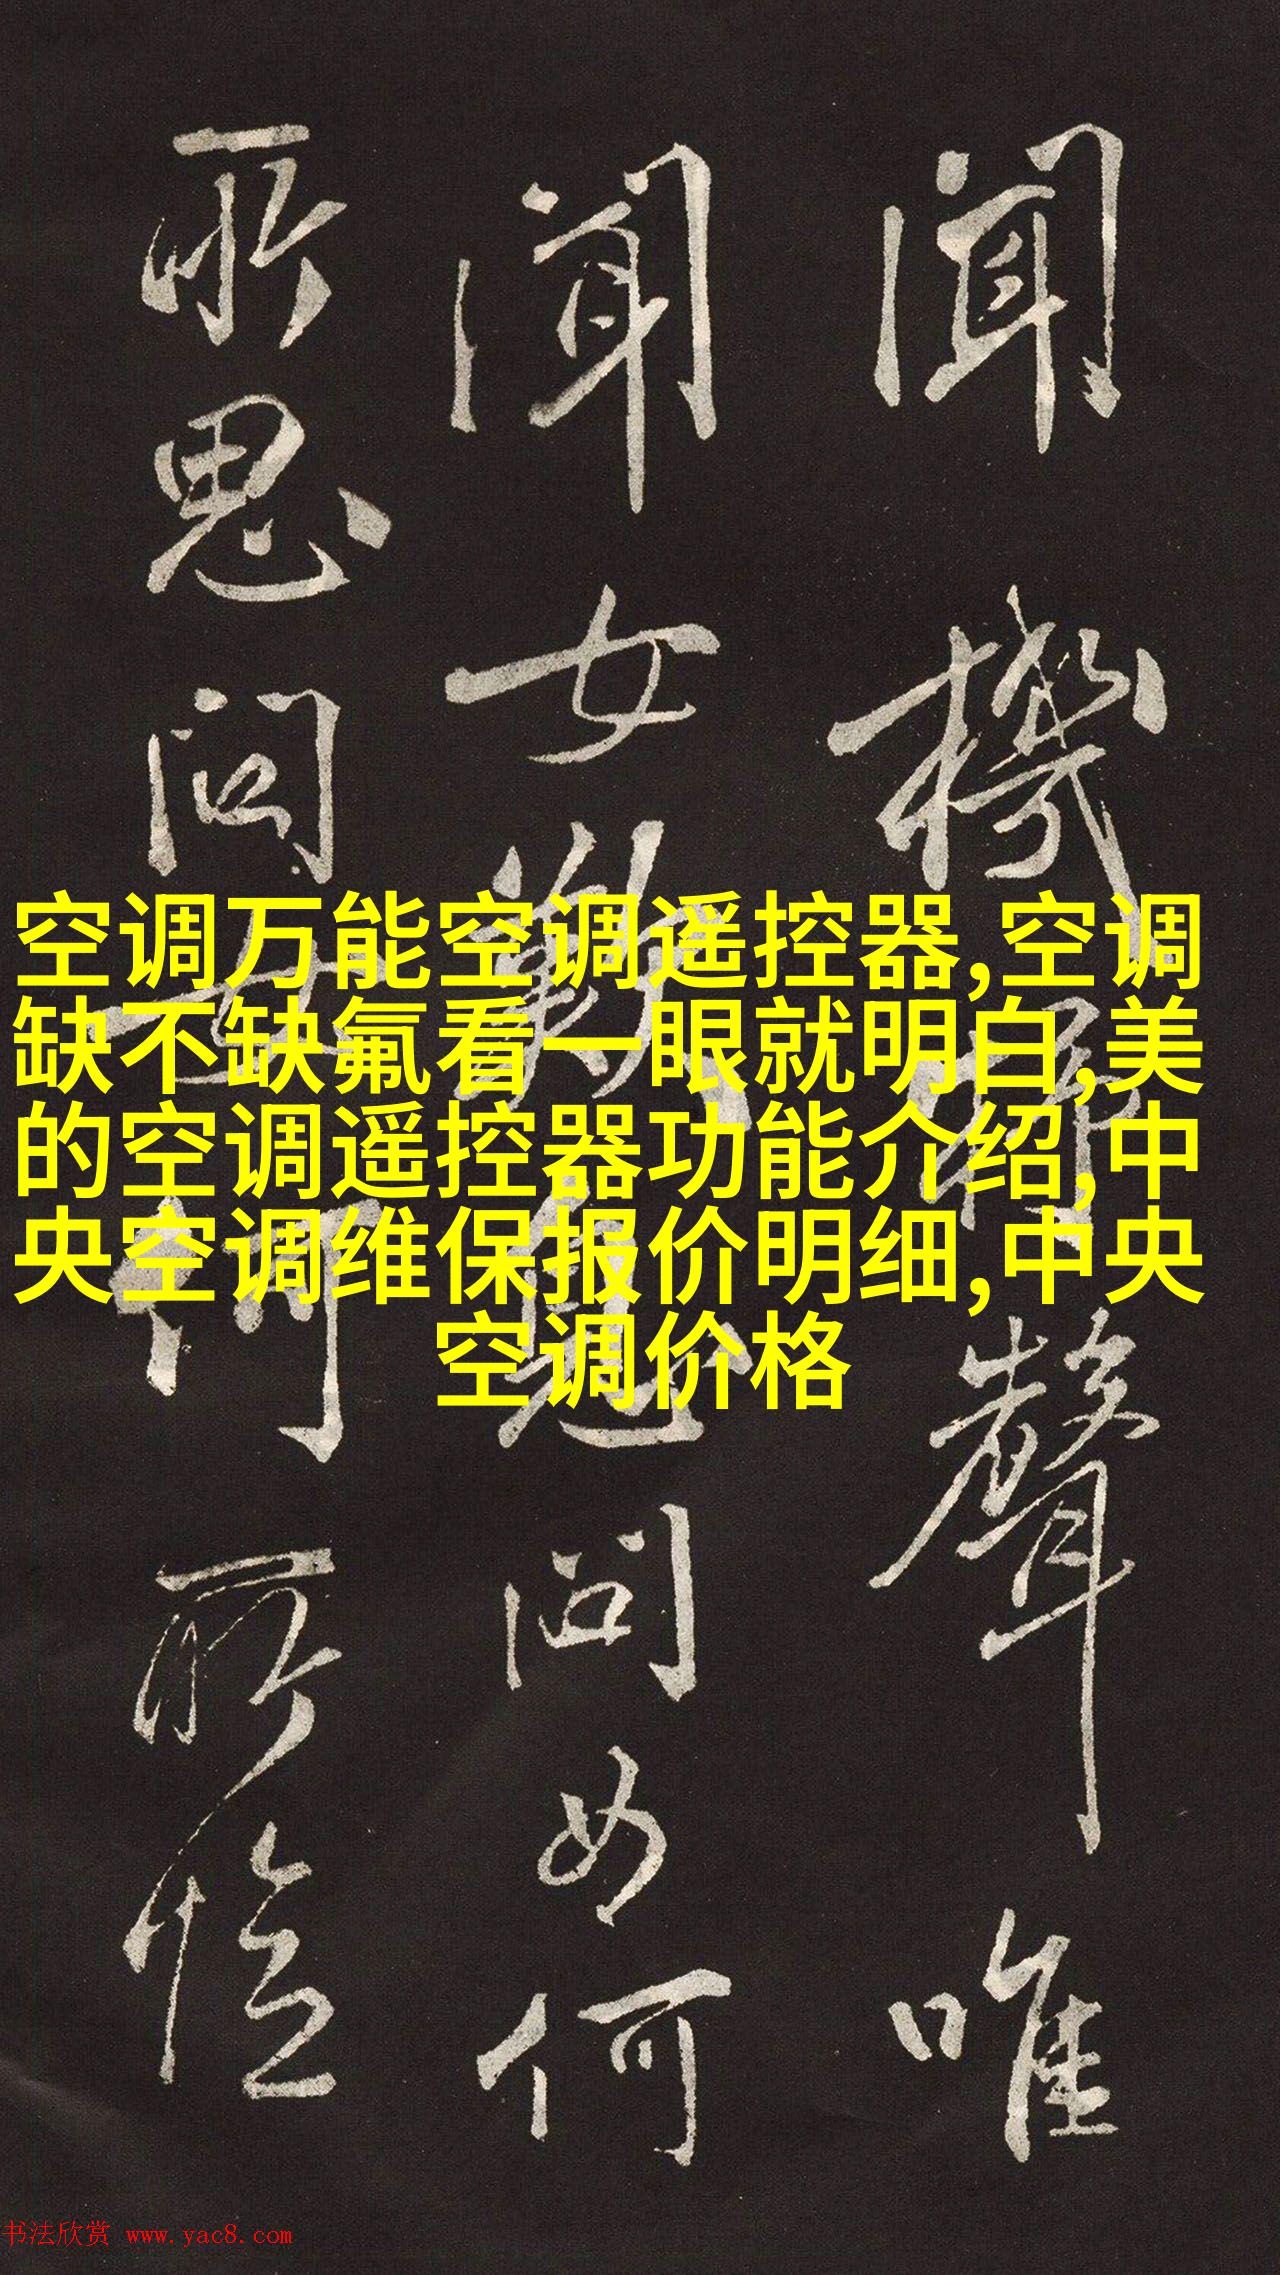 聞機杼聲唯
聞女歎息問女何
所思問女何所憶
空调万能空调遥控器,空调
缺不缺氟看一眼就明白,美
的空调遥控器功能介绍,中
央空调维保报价明细,中央
空调价格
书法欣赏 www.yac8.com